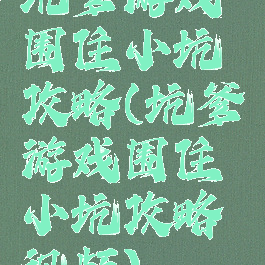 坑爹游戏
围住小坑
攻略(坑爹
游戏围住
小坑攻略
视频)